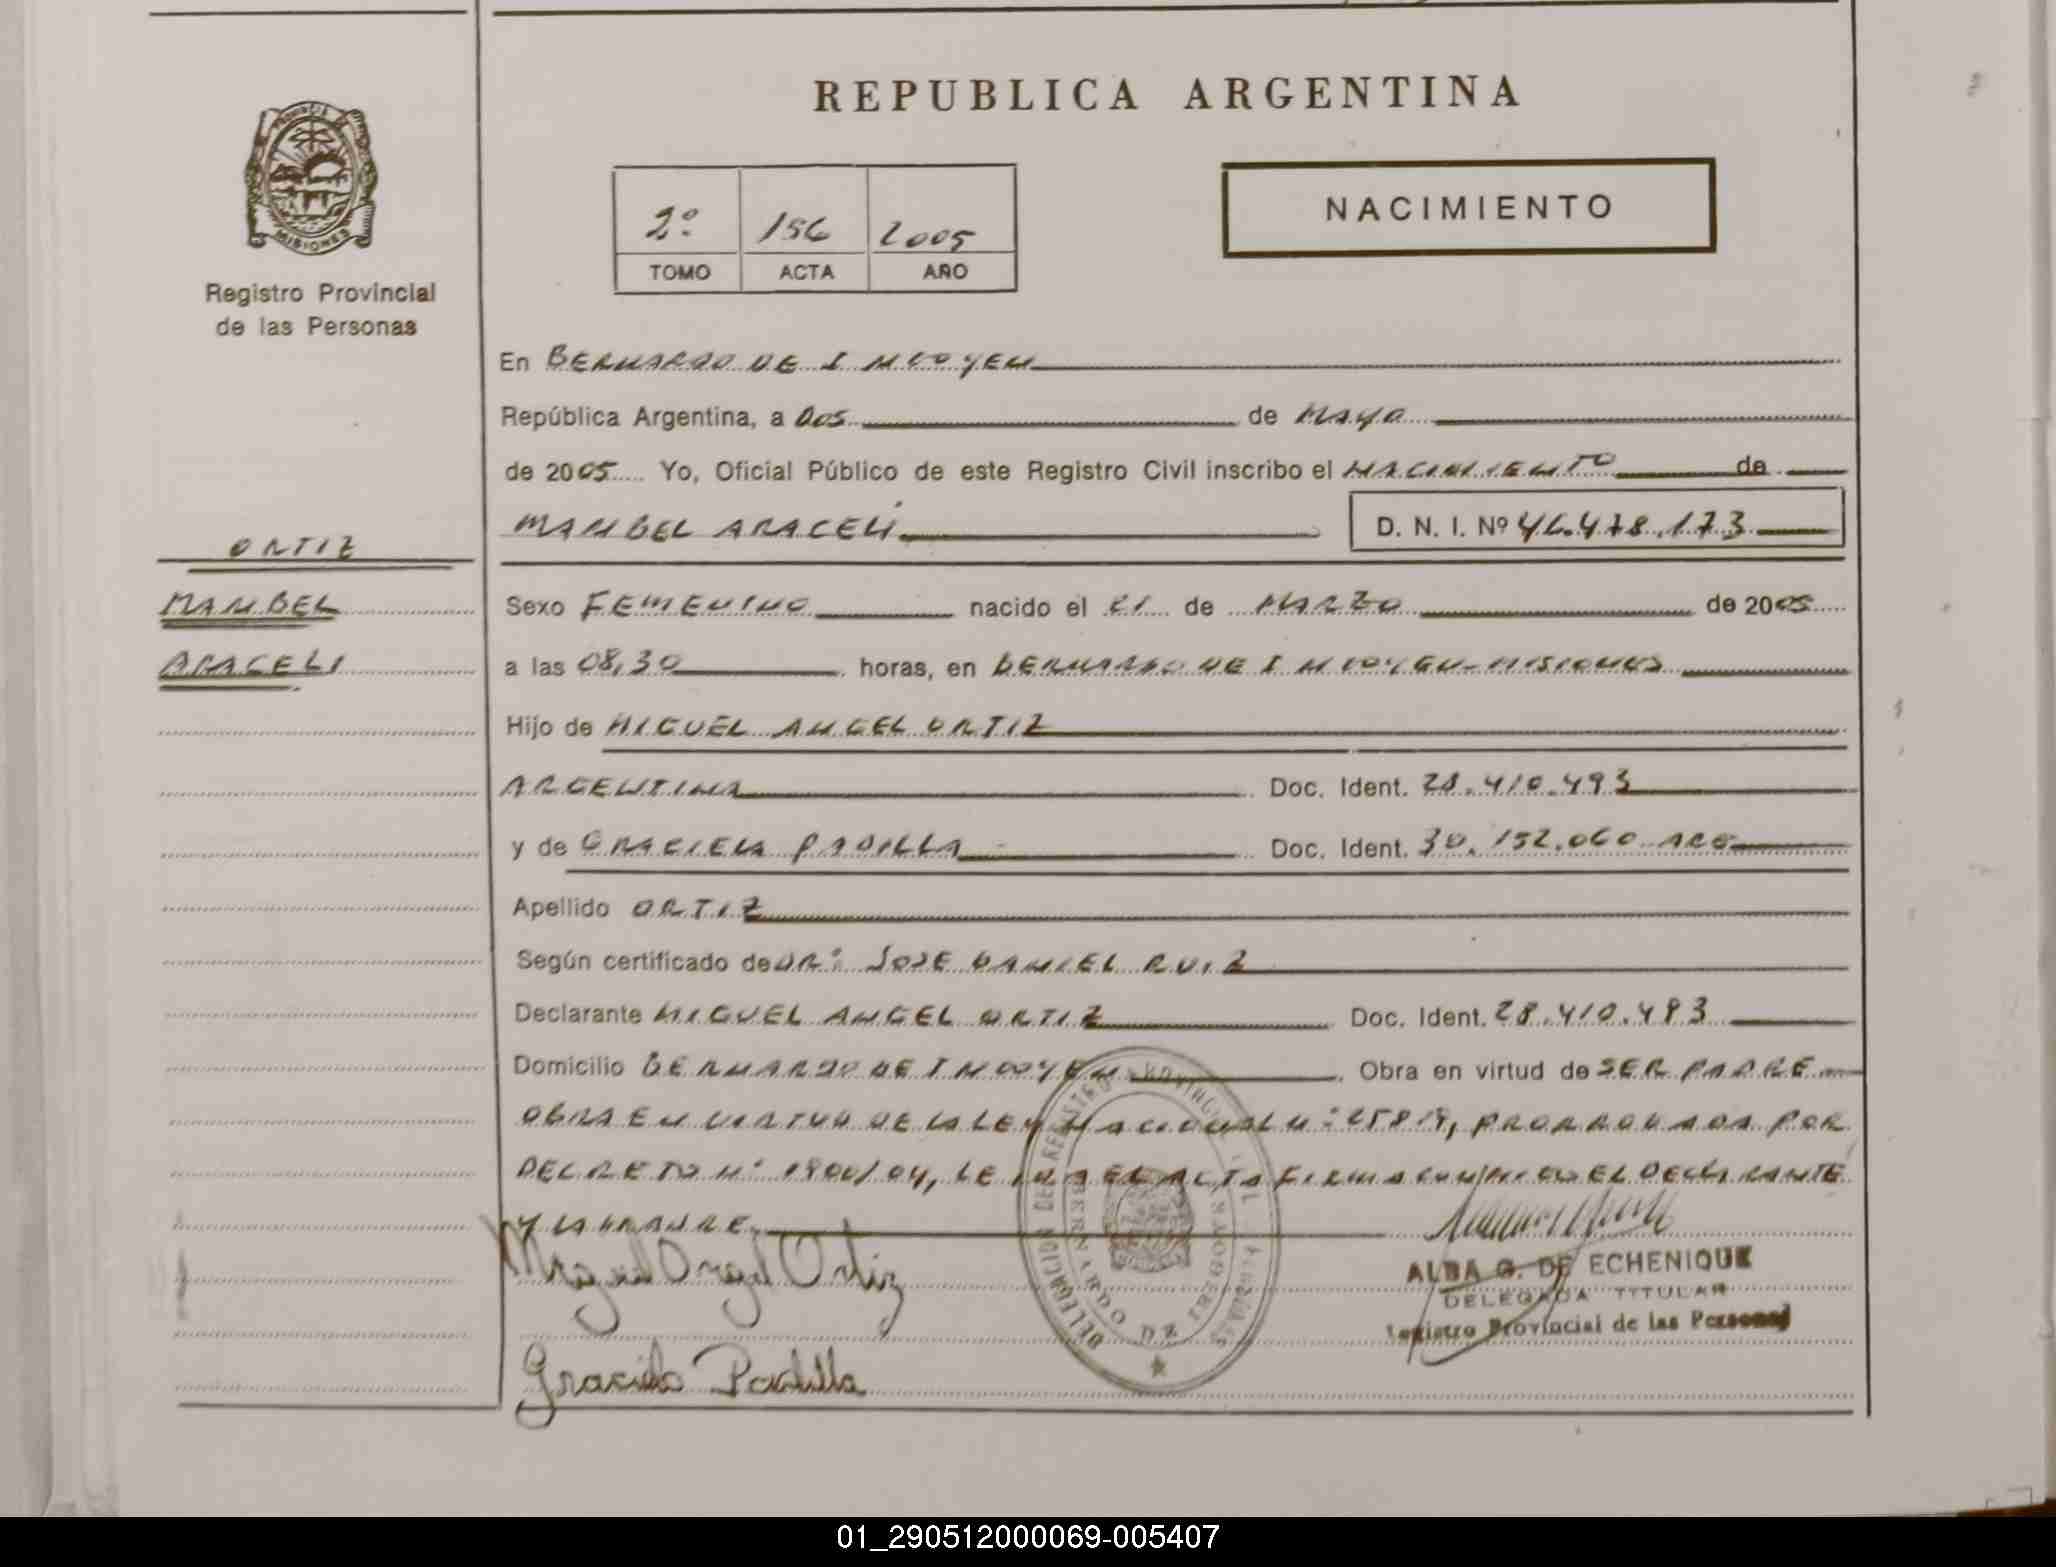 REPUBLICA ARGENTINA
PROVINCIA DE
MISIONES
Registro Provincial
de las Personas
2º 156 2005
TOMO ACTA AÑO
NACIMIENTO
En BERNARDO DE IRIGOYEN
República Argentina, a DOS de MAYO
de 2005 Yo, Oficial Público de este Registro Civil inscribo el NACIMIENTO de
MARIBEL ARACELI D. N. I. Nº 46.478.173
ORTIZ
MARIBEL
ARACELI
Sexo FEMENINO nacido el 21 de MARZO de 2005
a las 08,30 horas, en BERNARDO DE IRIGOYEN-MISIONES
Hijo de MIGUEL ANGEL ORTIZ
ARGENTINA Doc. Ident. 28.410.493
y de GRACIELA PADILLA Doc. Ident. 30.152.060 ARG
Apellido ORTIZ
Según certificado de DR: JOSE DANIEL RUIZ
Declarante MIGUEL ANGEL ORTIZ Doc. Ident. 28.410.493
Domicilio BERNARDO DE IRIGOYEN Obra en virtud de SER PADRE
OBRA EN VIRTUD DE LA LEY NACIONAL Nº 25819, PRORROGADA POR
DECRETO Nº 1900/04, LEIDA EL ACTA FIRMA CONMIGO EL DECLARANTE
Y LA MADRE.
Miguel Angel Ortiz
Graciela Padilla
ALBA G. DE ECHENIQUE
DELEGADA TITULAR
Registro Provincial de las Personas
01_290512000069-005407